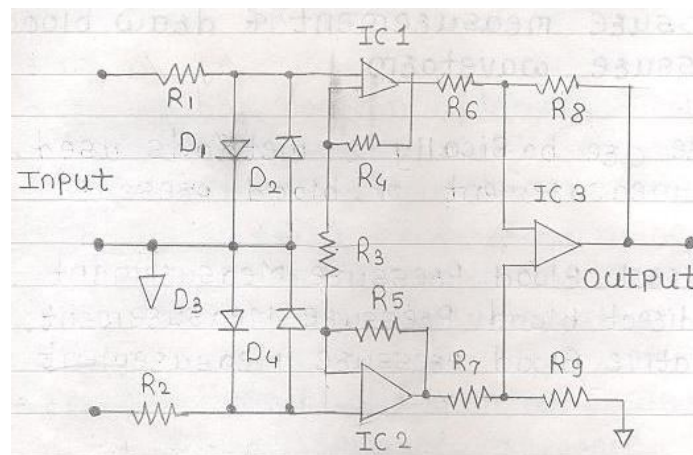 IC 1
R1
R6
R8
D1
D2
R4
Input
IC 3
R3
D3
R5
Output
D4
R2
R7
R9
IC 2